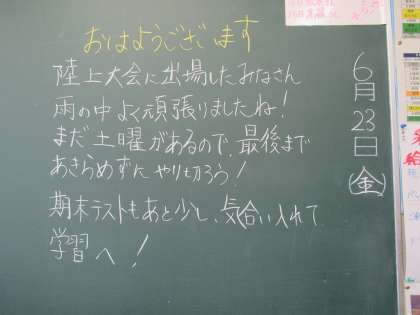 おはようございます
陸上大会に出場したみなさん
雨の中よく頑張りましたね！
まだ土曜があるので、最後まで
あきらめずにやり切ろう！
期末テストもあと少し、気合い入れて
学習へ！
6月23日(金)